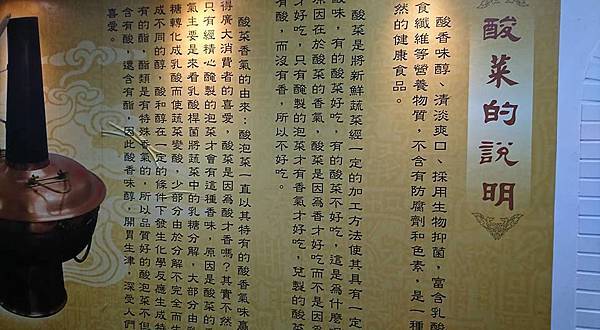 酸菜的說明
酸香味醇、清淡爽口、採用生物抑菌，富含乳酸
食纖維等營養物質，不含有防腐劑和色素，是一種
然的健康食品。
酸菜是將新鮮蔬菜經一定的加工方法使其具有一定
酸味，有的酸菜好吃，有的酸菜不好吃，這是為什麼呢
原因在於酸菜的香氣，酸菜是因為香才好吃而不是因為
才好吃，只有醃製的泡菜才有香氣才好吃，兌製的酸菜
有酸，而沒有香，所以不好吃。
酸菜香氣的由來：酸泡菜一直以其特有的酸香氣味贏
得廣大消費者的喜愛，酸菜是因為酸才香嗎？其實不然
只有經精心醃製的泡菜才會有這種香味，原因是酸菜的
氣主要是來看乳酸桿菌將蔬菜中的乳糖分解，大部分由乳
糖轉化成乳酸而使蔬菜變酸，少部分由於分解不完全而生
成不同的醇，酸和醇在一定的條件下發生化學反應生成特
有的酯，酯類是有特殊香氣的，所以品質好的酸泡菜不但
含有酸，還含有酯，因此酸香味醇，開胃生津，深受人們
喜愛。